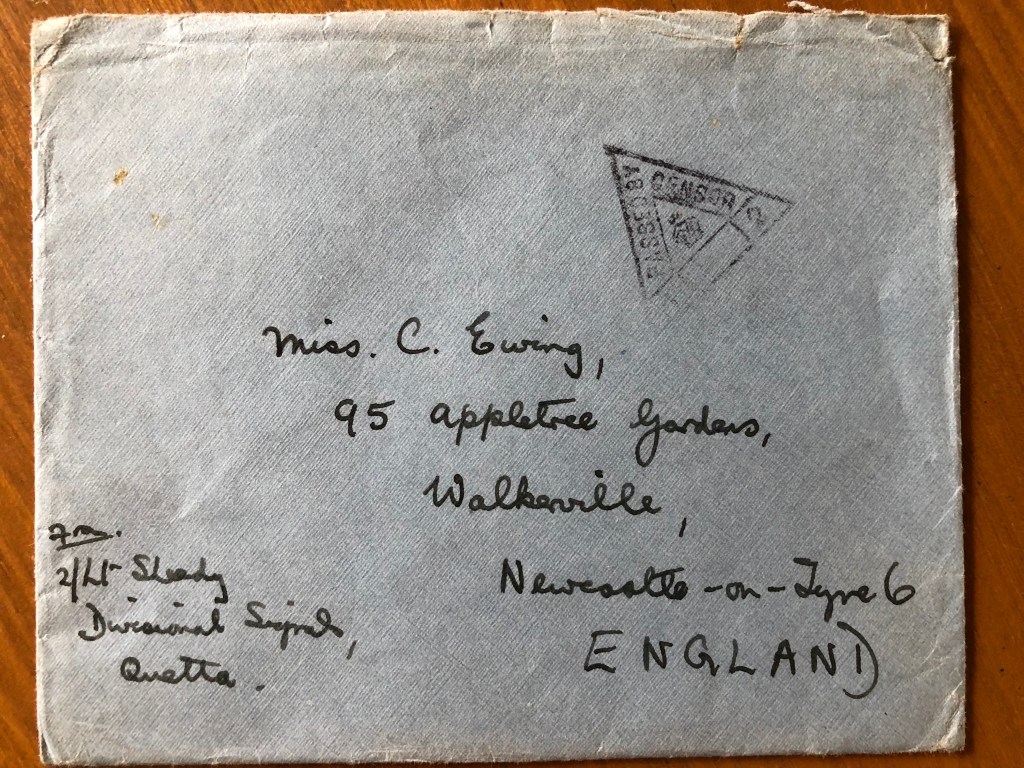 PASSED BY
CENSOR
2
Miss. C. Ewing,
95 Appletree Gardens,
Walkerville,
Newcastle-on-Tyne 6
ENGLAND
2/Lt
Divisional Signals,
Quetta.